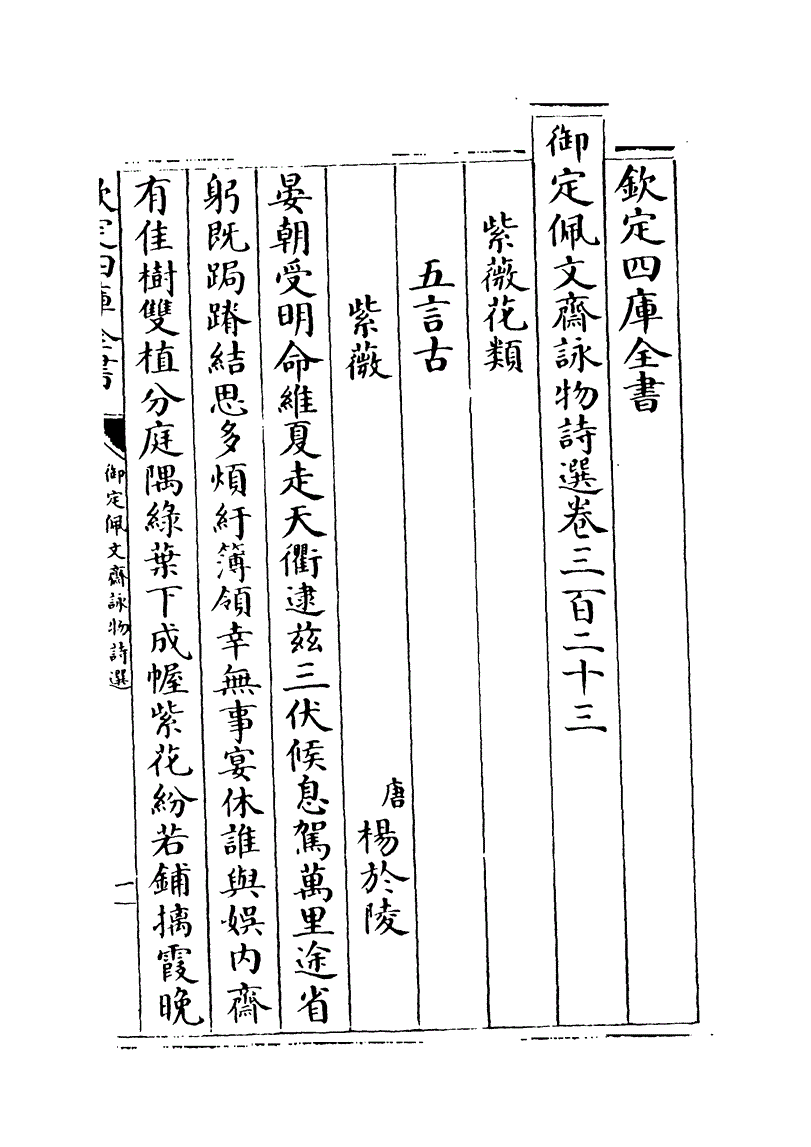 欽定四庫全書
御定佩文齋詠物詩選卷三百二十三
紫薇花類
五言古
紫薇
唐楊於陵
晏朝受明命維夏走天衢逮兹三伏候息駕萬里途省
躬既跼蹐結思多煩紆簿領幸無事宴休誰與娛内齋
有佳樹雙植分庭隅綠葉下成幄紫花紛若鋪摛霞晚
欽定四庫全書
御定佩文齋詠物詩選
一